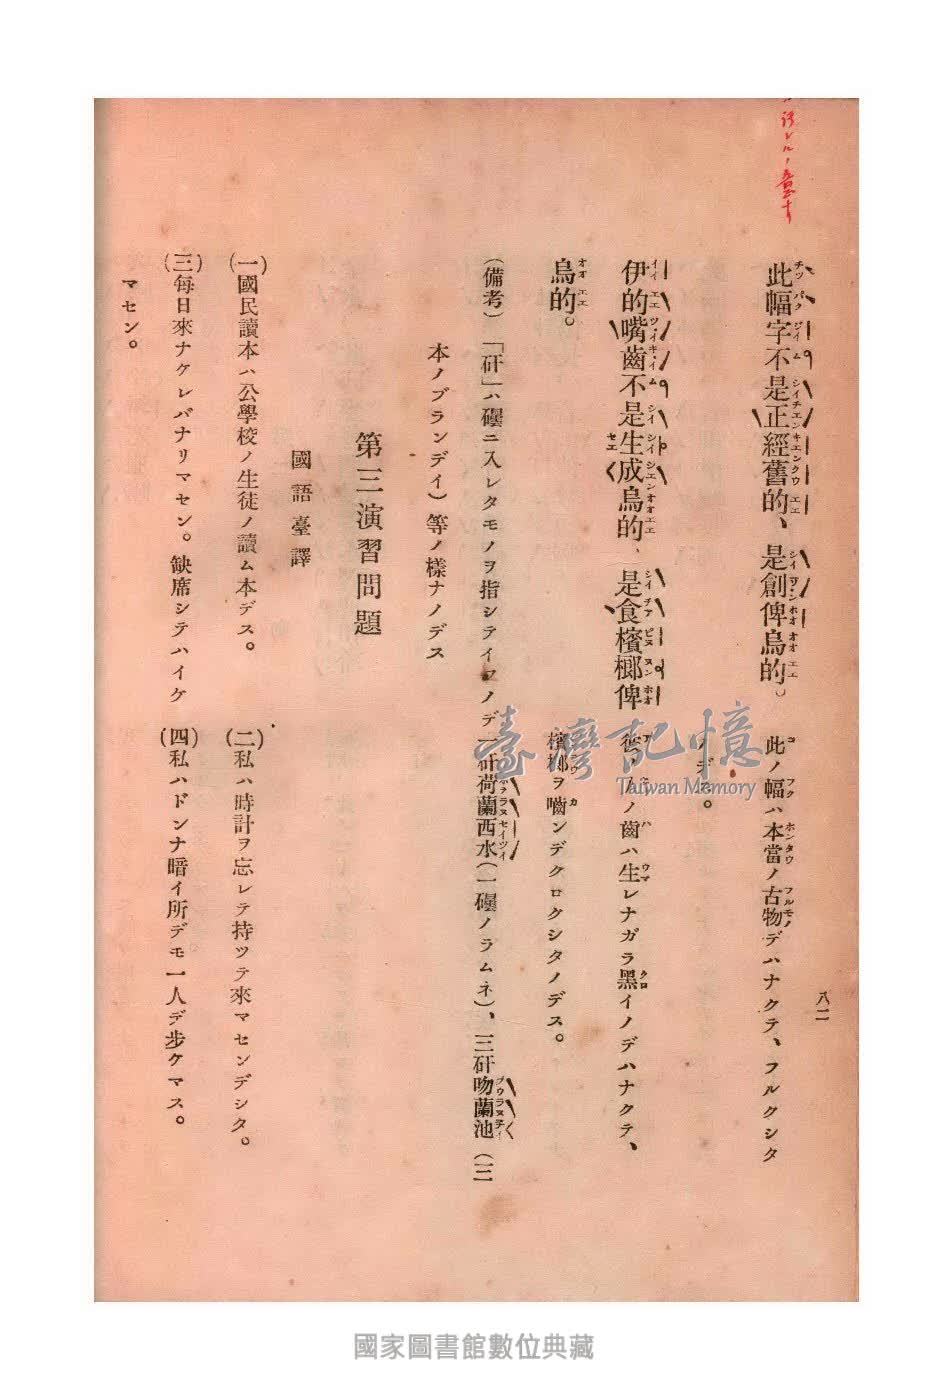 八二
此幅字不是正經舊的、是創俾烏的。
此ノ幅ハ本當ノ古物デハナクテ、フルクシタ
ノデス。
伊的嘴齒不是生成烏的、是食檳榔俾
烏的。
彼ノ人ノ齒ハ生レナガラ黑イノデハナクテ、
檳榔ヲ嚙ンデクロクシタノデス。
(備考)「矸」ハ罐ニ入レタモノヲ指シテイフノデ一矸荷蘭西水(一罐ノラムネ)、三矸吻蘭池(三
本ノブランデイ)等ノ樣ナノデス
第三演習問題
國語臺譯
(一)國民讀本ハ公學校ノ生徒ノ讀ム本デス。
(二)私ハ時計ヲ忘レテ持ツテ來マセンデシタ。
(三)每日來ナケレバナリマセン。缺席シテハイケ
マセン。
(四)私ハドンナ暗イ所デモ一人デ步ケマス。
臺灣記憶
Taiwan Memory
國家圖書館數位典藏